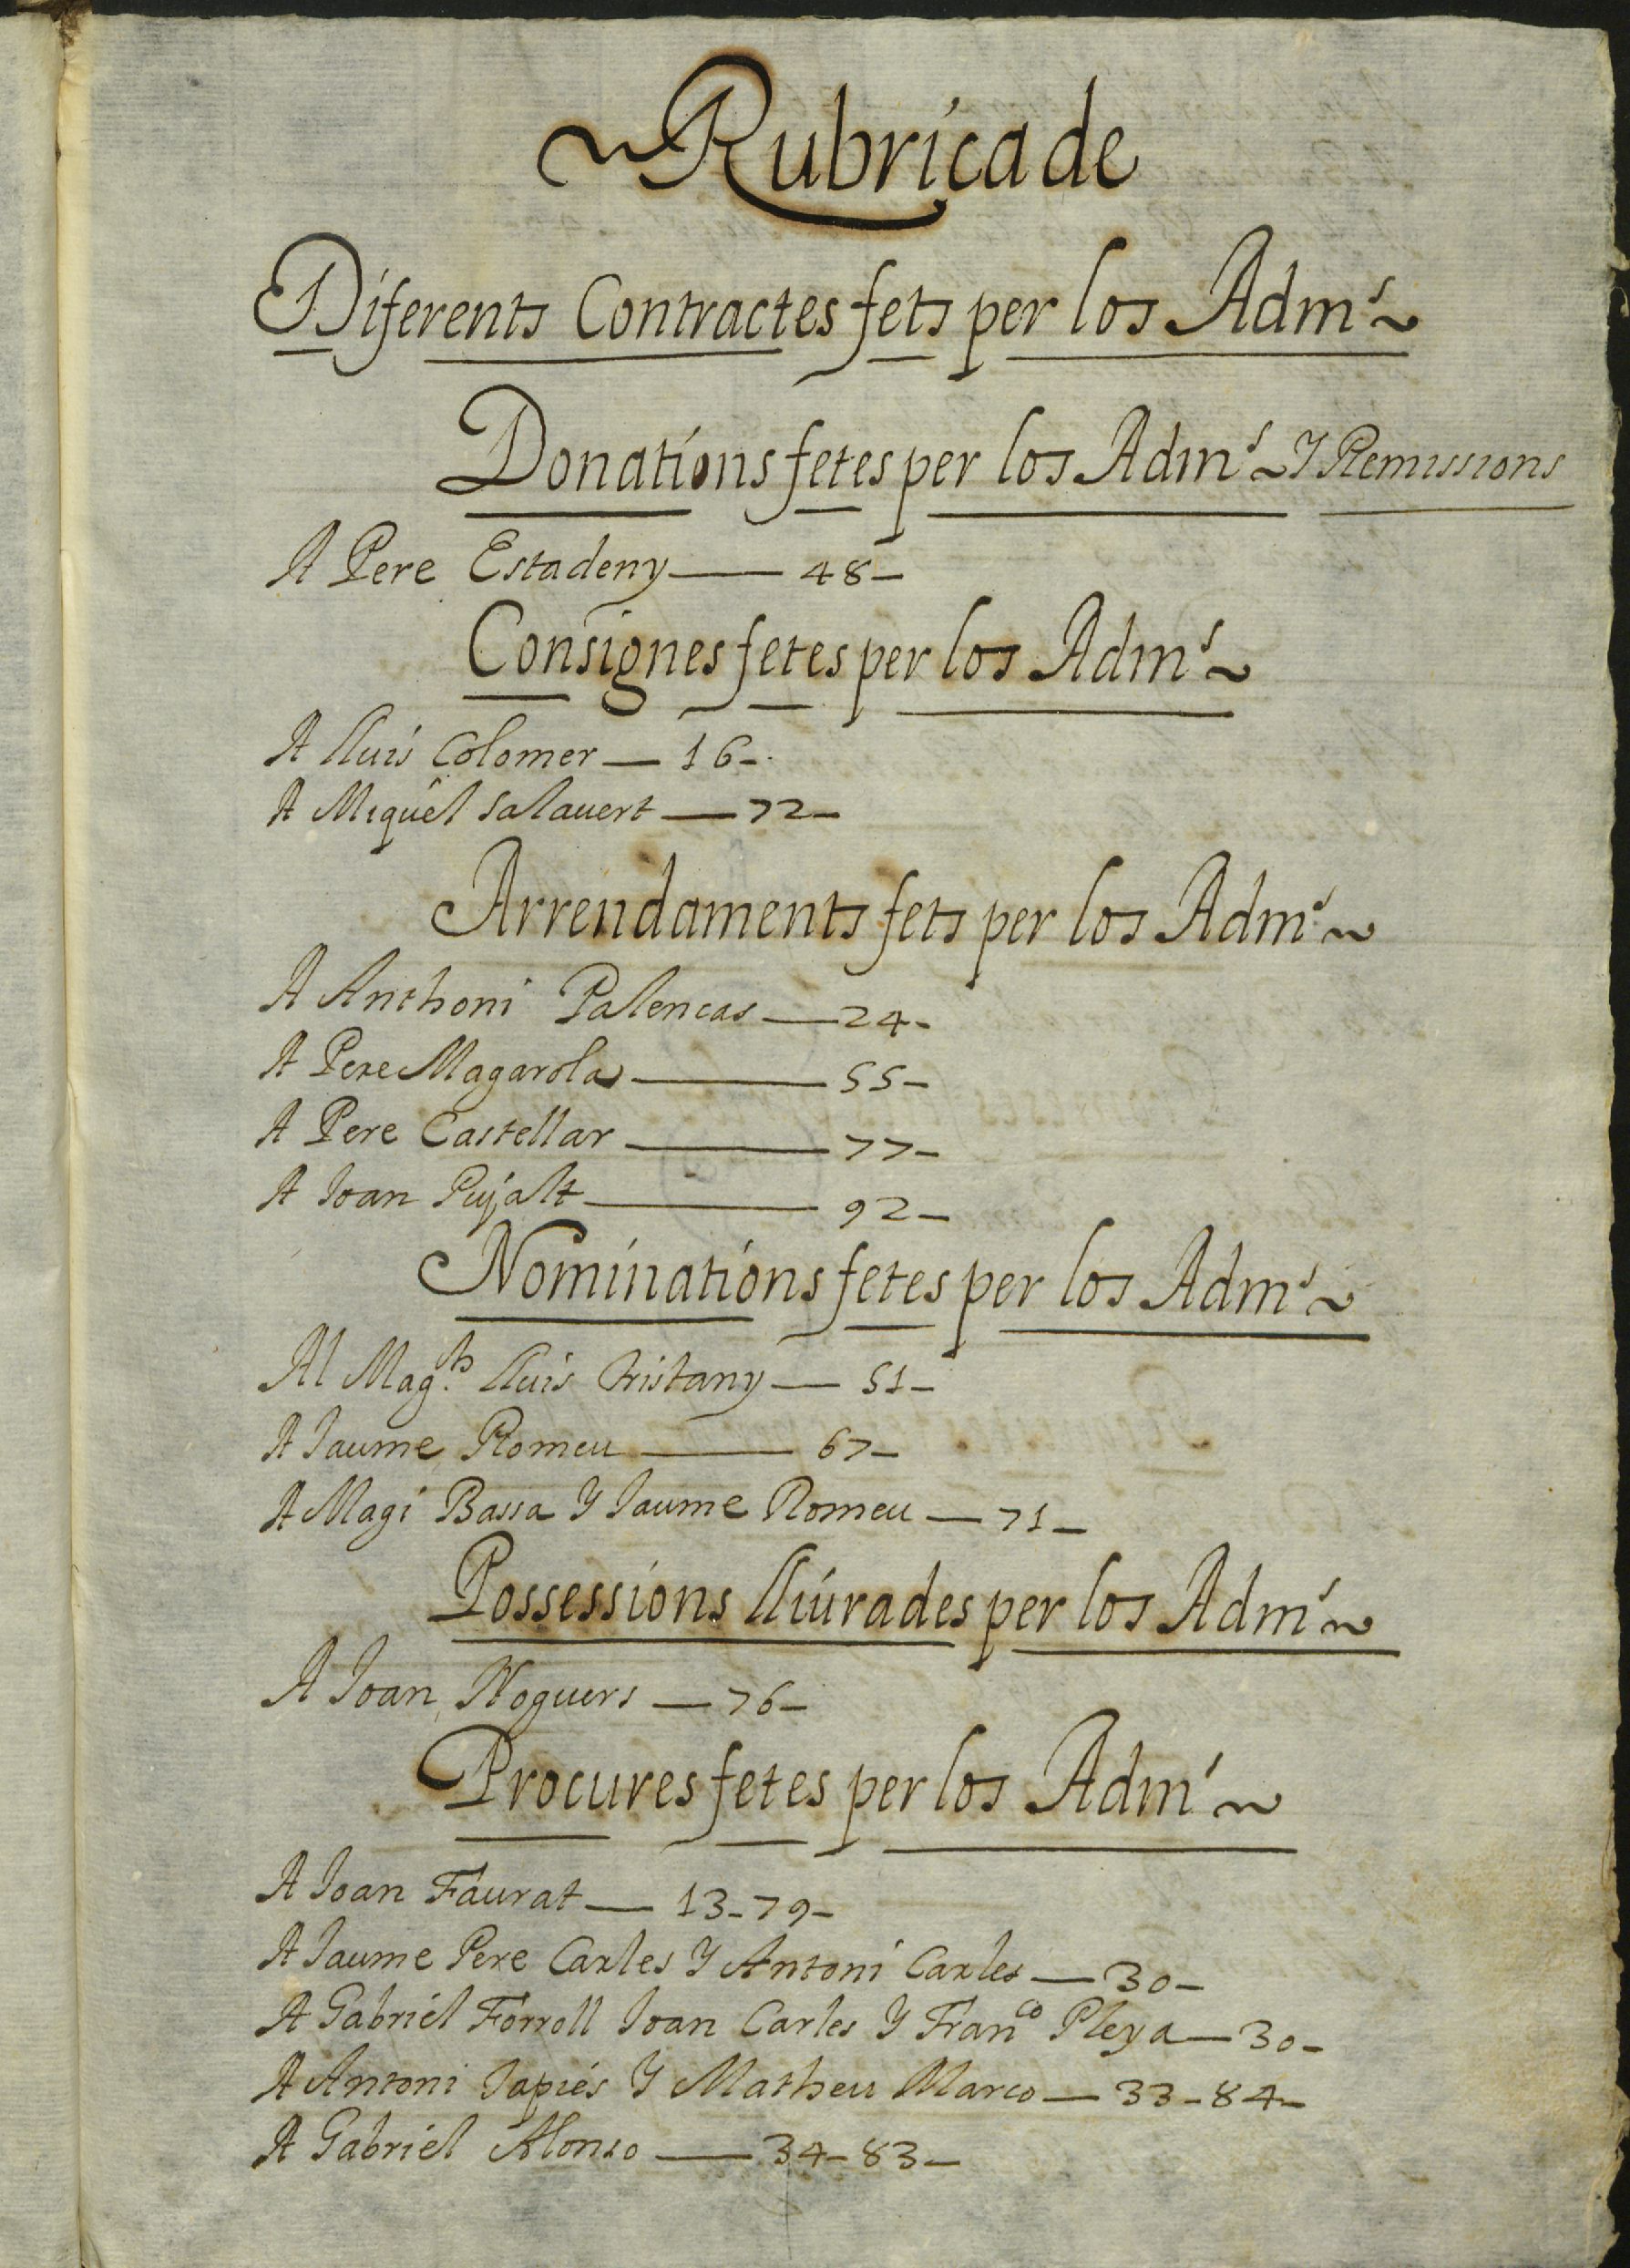 Rubrica de
Diferents Contractes fets per los Adm.s
Donations fetes per los Adm.s Y Remissions
A Pere Estadeny — 48 —
Consignes fetes per los Adm.s
A Lluis Colomer — 16 —
A Miquel Salauert — 72 —
Arrendaments fets per los Adm.s
A Anthoni Palencas — 24 —
A Pere Magarola — 55 —
A Pere Castellar — 77 —
A Joan Pujalt — 92 —
Nominations fetes per los Adm.s
Al Mag.ch Lluis Tristany — 51 —
A Jaume Romeu — 67 —
A Magi Bassa Y Jaume Romeu — 71 —
Possessions lliurades per los Adm.s
A Joan Noguers — 76 —
Procures fetes per los Adm.s
A Joan Faurat — 13 - 79 —
A Jaume Pere Carles Y Antoni Carles — 30 —
A Gabriel Forroll Joan Carles Y Fran.co Pleya — 30 —
A Antoni Tapies Y Matheu Marco — 33 - 84 —
A Gabriel Alonso — 34 - 83 —